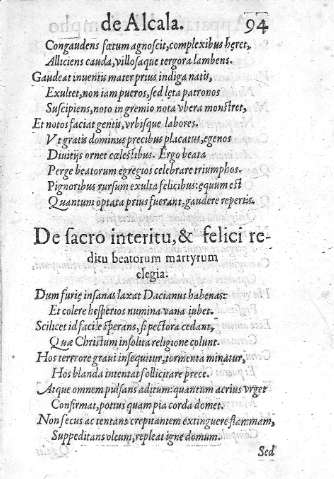 de Alcala. 94
Congaudens fœtum agnoscit, complexibus hęret,
Alliciens cauda, villosaque tergora lambens.
Gaudeat inuentis mater prius indiga natis,
Exultet, non iam pueros, sed lęta patronos
Suscipiens, noto in gremio nota vbera monstret,
Et notos faciat genîu, vrbisque labores.
Vt gratis dominus precibus placatus, egenos
Diuitijs ornet cœlestibus. Ergo beata
Perge beatorum egregios celebrare triumphos.
Pignoribus rursum exulta felicibus: equum est
Quantum optata prius fuerant, gaudere repertis.
De sacro interitu, & felici re-
ditu beatorum martyrum
elegia.
Dum furię insanas laxat Dacianus habenas:
Et colere hesperios numina vana iubet.
Scilicet id facile sperans, si pectora cedant,
Quæ Christum insolita religione colunt.
Hos terrore graui insequitur, tormenta minatur,
Hos blanda intentat sollicitare prece.
Atque omnem pulsans aditum: quantum acrius vrget
Confirmat, potius quam pia corda domet.
Non secus ac tentans crepitantem extinguere flammam,
Suppeditans oleum, repleat igne domum.
Sed